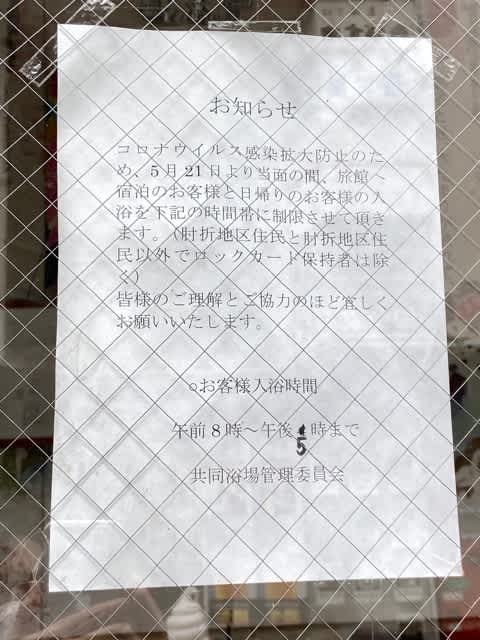 お知らせ
コロナウイルス感染拡大防止のた
め、5月21日より当面の間、旅館へ
宿泊のお客様と日帰りのお客様の入
浴を下記の時間帯に制限させて頂き
ます。（肘折地区住民と肘折地区住
民以外でロックカード保持者は除
く）
皆様のご理解とご協力のほど宜しく
お願いいたします。
○お客様入浴時間
午前8時～午後 時まで
5
共同浴場管理委員会